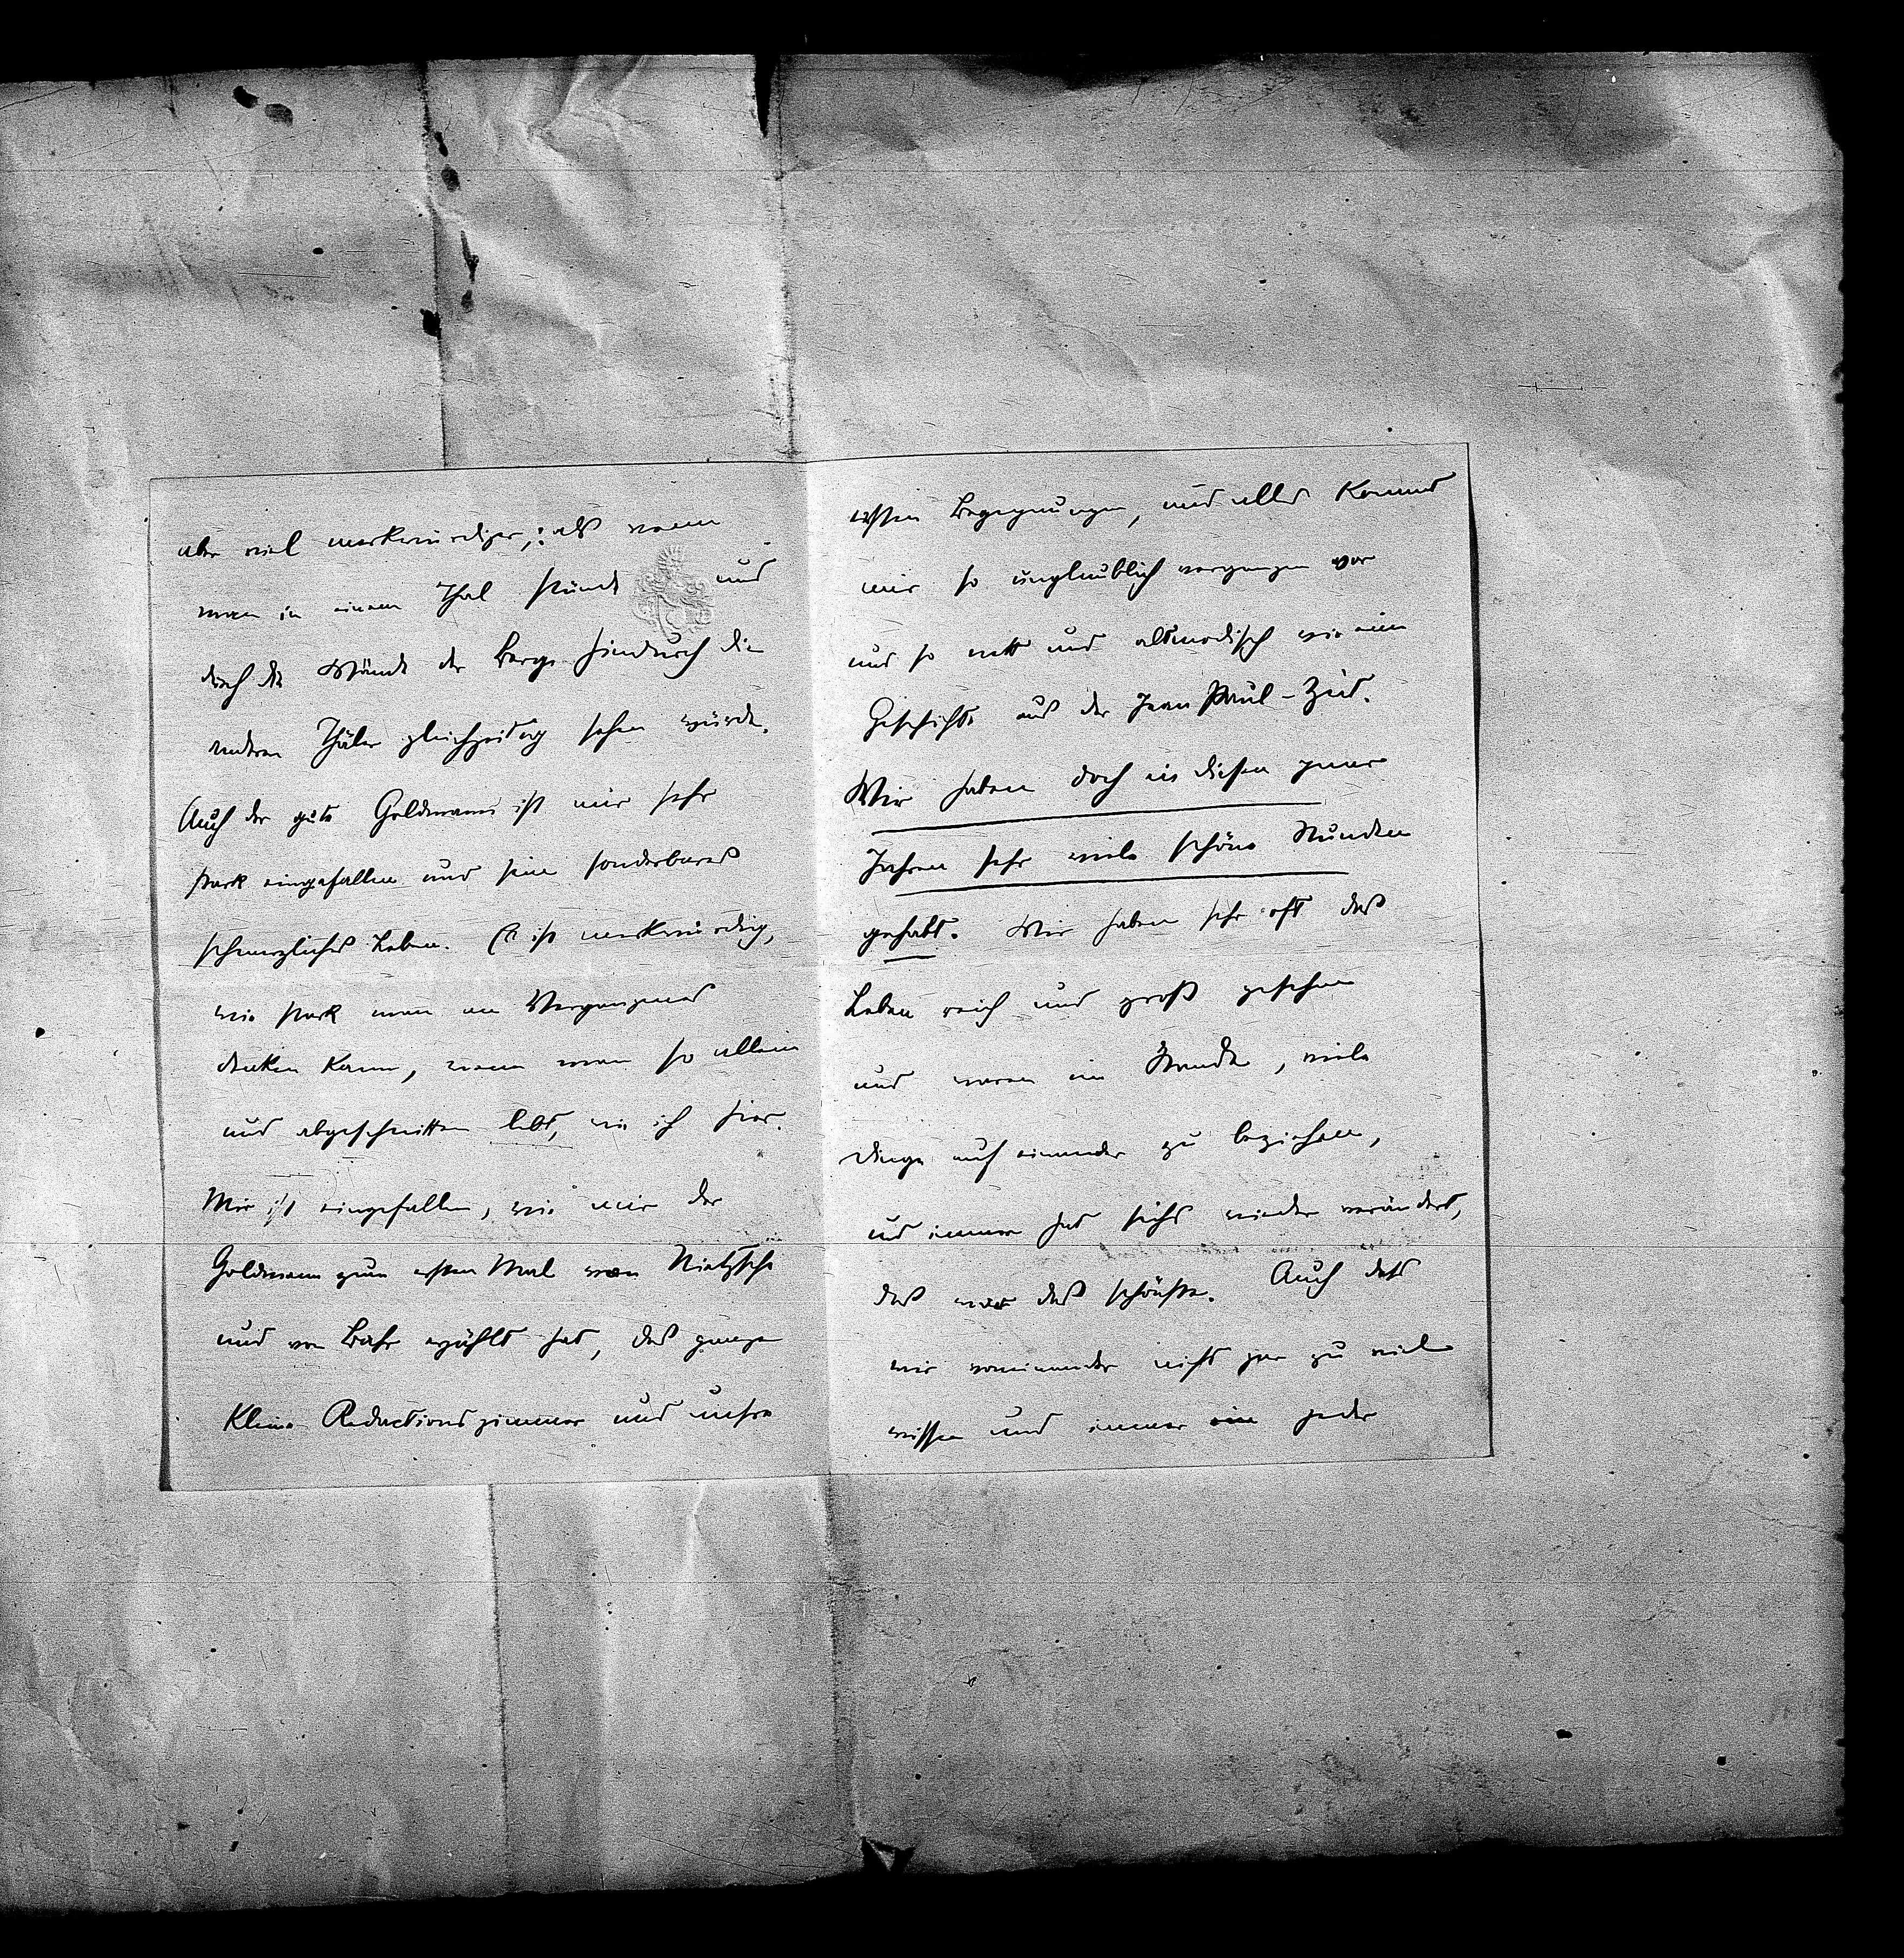 aber viel merkwürdiger,: als wenn
man in einem Thal stünde und
durch die Wände der Berge hindurch die
anderen Thäler gleichzeitig sehen würde.
Auch der gute Goldmann ist mir sehr
stark eingefallen und sein sonderbares
schmerzliches Leben. Es ist merkwürdig,
wie stark man an Vergangenes
denken kann, wenn man so allein
und abgeschnitten lebt, wie ich hier.
Mir ist eingefallen, wie mir der
Goldmann zum ersten Mal von Nietzsche
und von Bahr erzählt hat, das ganze
kleine Redactionszimmer und unsre
ersten Begegnungen, und alles kommt
mir so unglaublich vergangen vor
und so nett und altmodisch wie eine
Geschichte aus der Jean Paul-Zeit.
Wir haben doch in diesen paar
Jahren sehr viele schöne Stunden
gehabt. Wir haben sehr oft das
Leben reich und groß gesehen
und waren im Stande, viele
Dinge auf einander zu beziehen,
und immer hat sichs wieder verändert,
das war das schönste. Auch dass
wir voneinander nicht gar zu viel
wissen und immer ein jeder